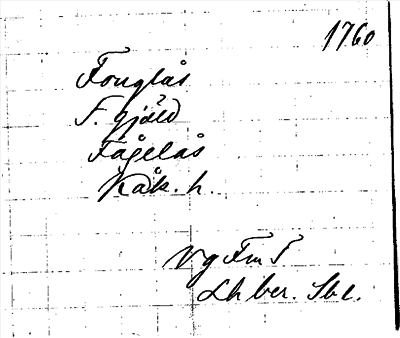 1760
Fouglås
F. gjäld
Fågelås
Kåk. h.
Vg Fm T
Lhber. Sbl.